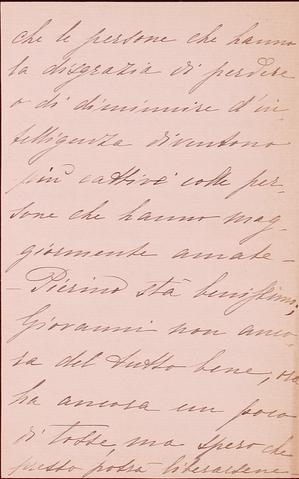 che le persone che hanno
la disgrazia di perdere
o di diminuire d'in
telligenza diventono
più cattive colle per-
sone che hanno mag-
giormente amate –
– Pierino stà benissimo;
Giovanni non anco-
ra del tutto bene, ora
ha ancora un poco
di tosse, ma spero che
presto potrà liberarsene